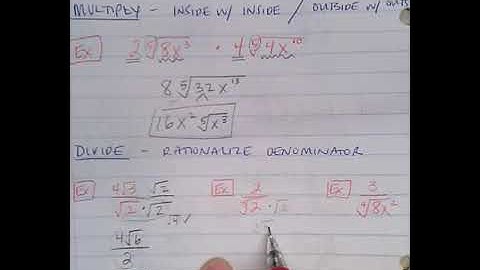 MULTIPLY - INSIDE W/ INSIDE / OUTSIDE W/ OUTS
Ex 2⁵√8x³ · 4⁵√4x¹⁰
8 ⁵√32x¹³
16x² ⁵√x³
DIVIDE - RATIONALIZE DENOMINATOR
Ex 4√3 √2 Ex 2 Ex 3
√2 · √2 √2 · √2 ⁴√8x²
√4
4√6
2